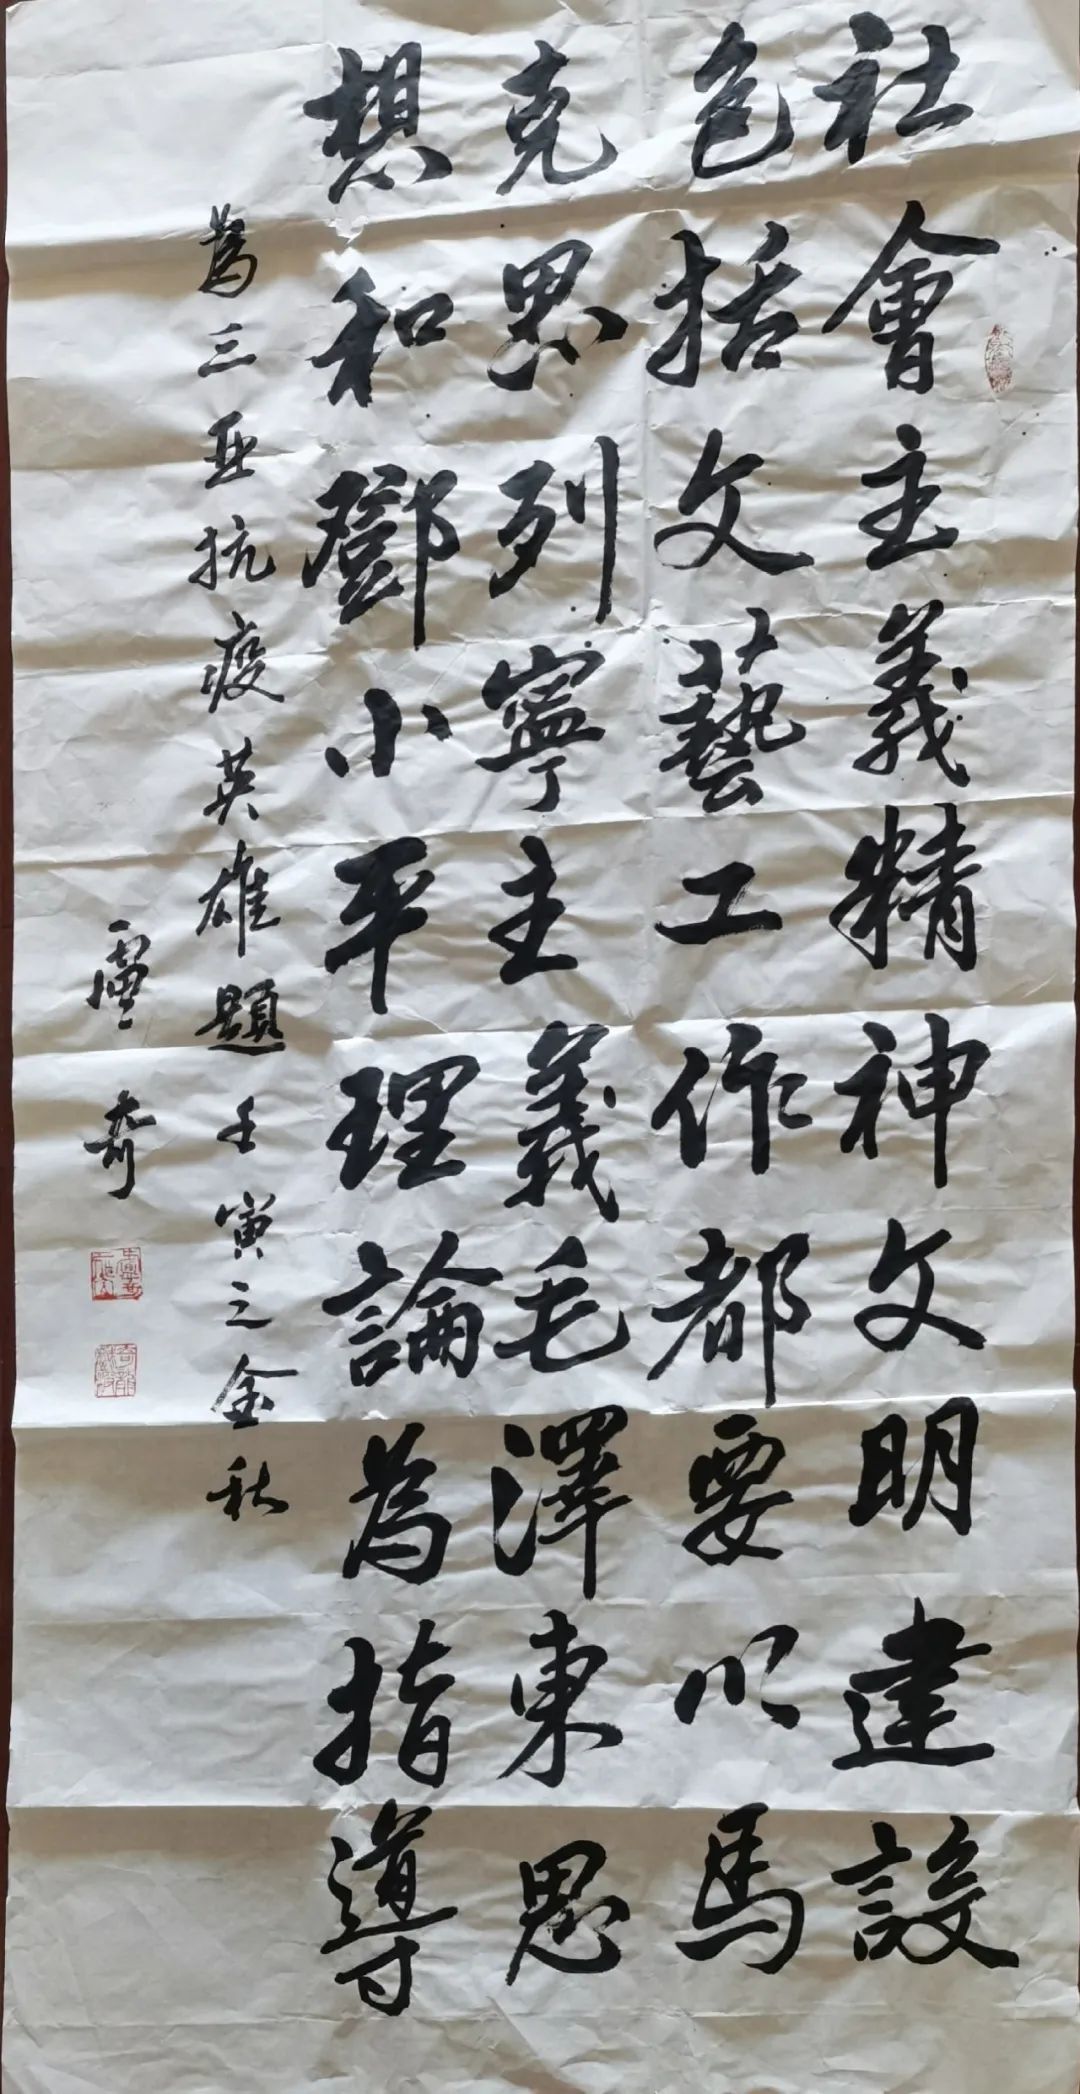 社會主義精神文明建設
包括文藝工作都要以馬
克思列寧主義毛澤東思
想和鄧小平理論為指導
為三亞抗疫英雄題壬寅之金秋
盧奇